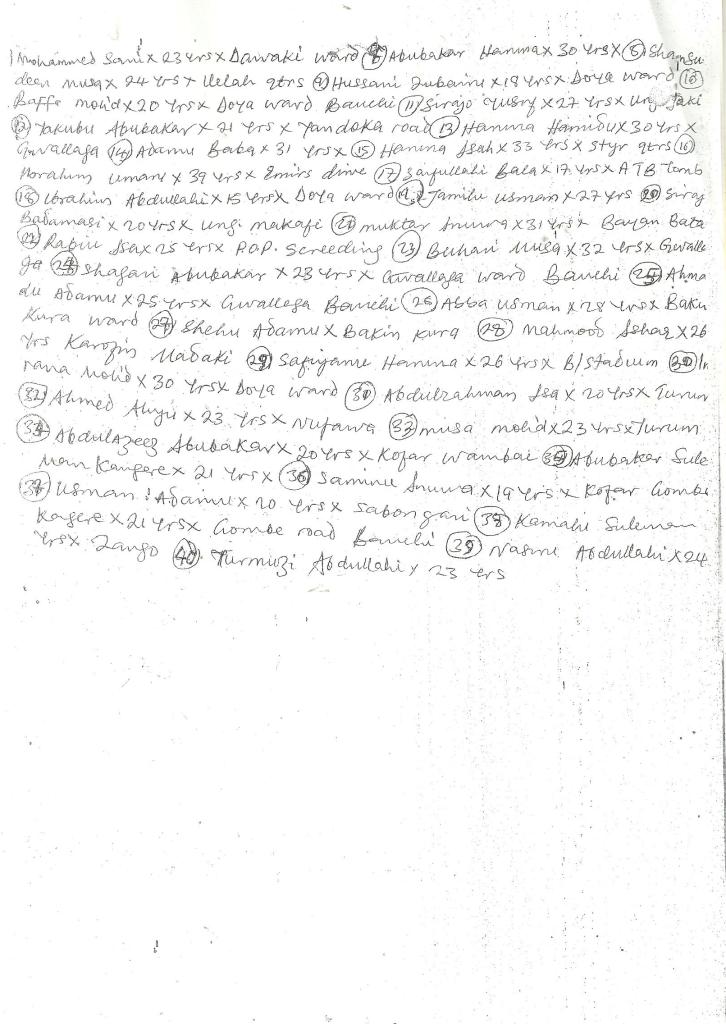 Mohammed Sani x 23 yrs x Dawaki ward (7) Abubakar Hamma x 30 yrs x (8) Shamsu
deen musa x 24 yrs x Uelah qtrs (9) Hussani Zubairu x 18 yrs x Doya ward (10)
Baffa mohd x 20 yrs x Doya ward Bauchi (11) Sirajo Yusuf x 27 yrs x ung. Jaki
(12) Yakubu Abubakar x 21 yrs x Yandoka road (13) Hamma Hamidu x 30 yrs x
Gwallaga (14) Adamu Baba x 31 yrs x (15) Hamma Isah x 33 yrs x styr qtrs (16)
Ibrahim Umaru x 39 yrs x Emirs drive (17) Saifullahi Bala x 17 yrs x ATB Tomb
(18) Ibrahim Abdullahi x 15 yrs x Doya ward (19) Jamilu usman x 27 yrs (20) Siraj
Badamasi x 20 yrs x ung. makafi (21) muktar Inuwa x 31 yrs x Bayan Bata
(22) Rabiu Isa x 25 yrs x P.O.P. Screeding (23) Buhari Musa x 32 yrs x Gwalle
ga (24) Shagari Abubakar x 23 yrs x Gwallaga ward Bauchi (25) Ahma
du Adamu x 25 yrs x Gwallaga Bauchi (26) Abba usman x 28 yrs x Baku
Kura ward (27) Shehu Adamu x Bakin Kura (28) Mahmood Ishaq x 26
yrs Karofin Madaki (29) Safiyanu Hamma x 26 yrs x B/Stadium (30) In
rana Mohd x 30 yrs x Doya ward (31) Abdulrahman Isa x 20 yrs x Turun
(32) Ahmed Aliyu x 23 yrs x Nufawa (33) musa mohd x 23 yrs x Turum
(34) Abdulazeez Abubakar x 20 yrs x Kofar Wambai (35) Abubakar Sule
man Kangere x 21 yrs x (36) Saminu Inuwa x 19 yrs x Kofar Gombe
(37) Usman Adamu x 20 yrs x Sabongari (38) Kamalu Suleman
Kagere x 21 yrs x Gombe road Bauchi (39) Nasiru Abdullahi x 24
yrs x Zango (40) Turmuzi Abdullahi x 23 yrs